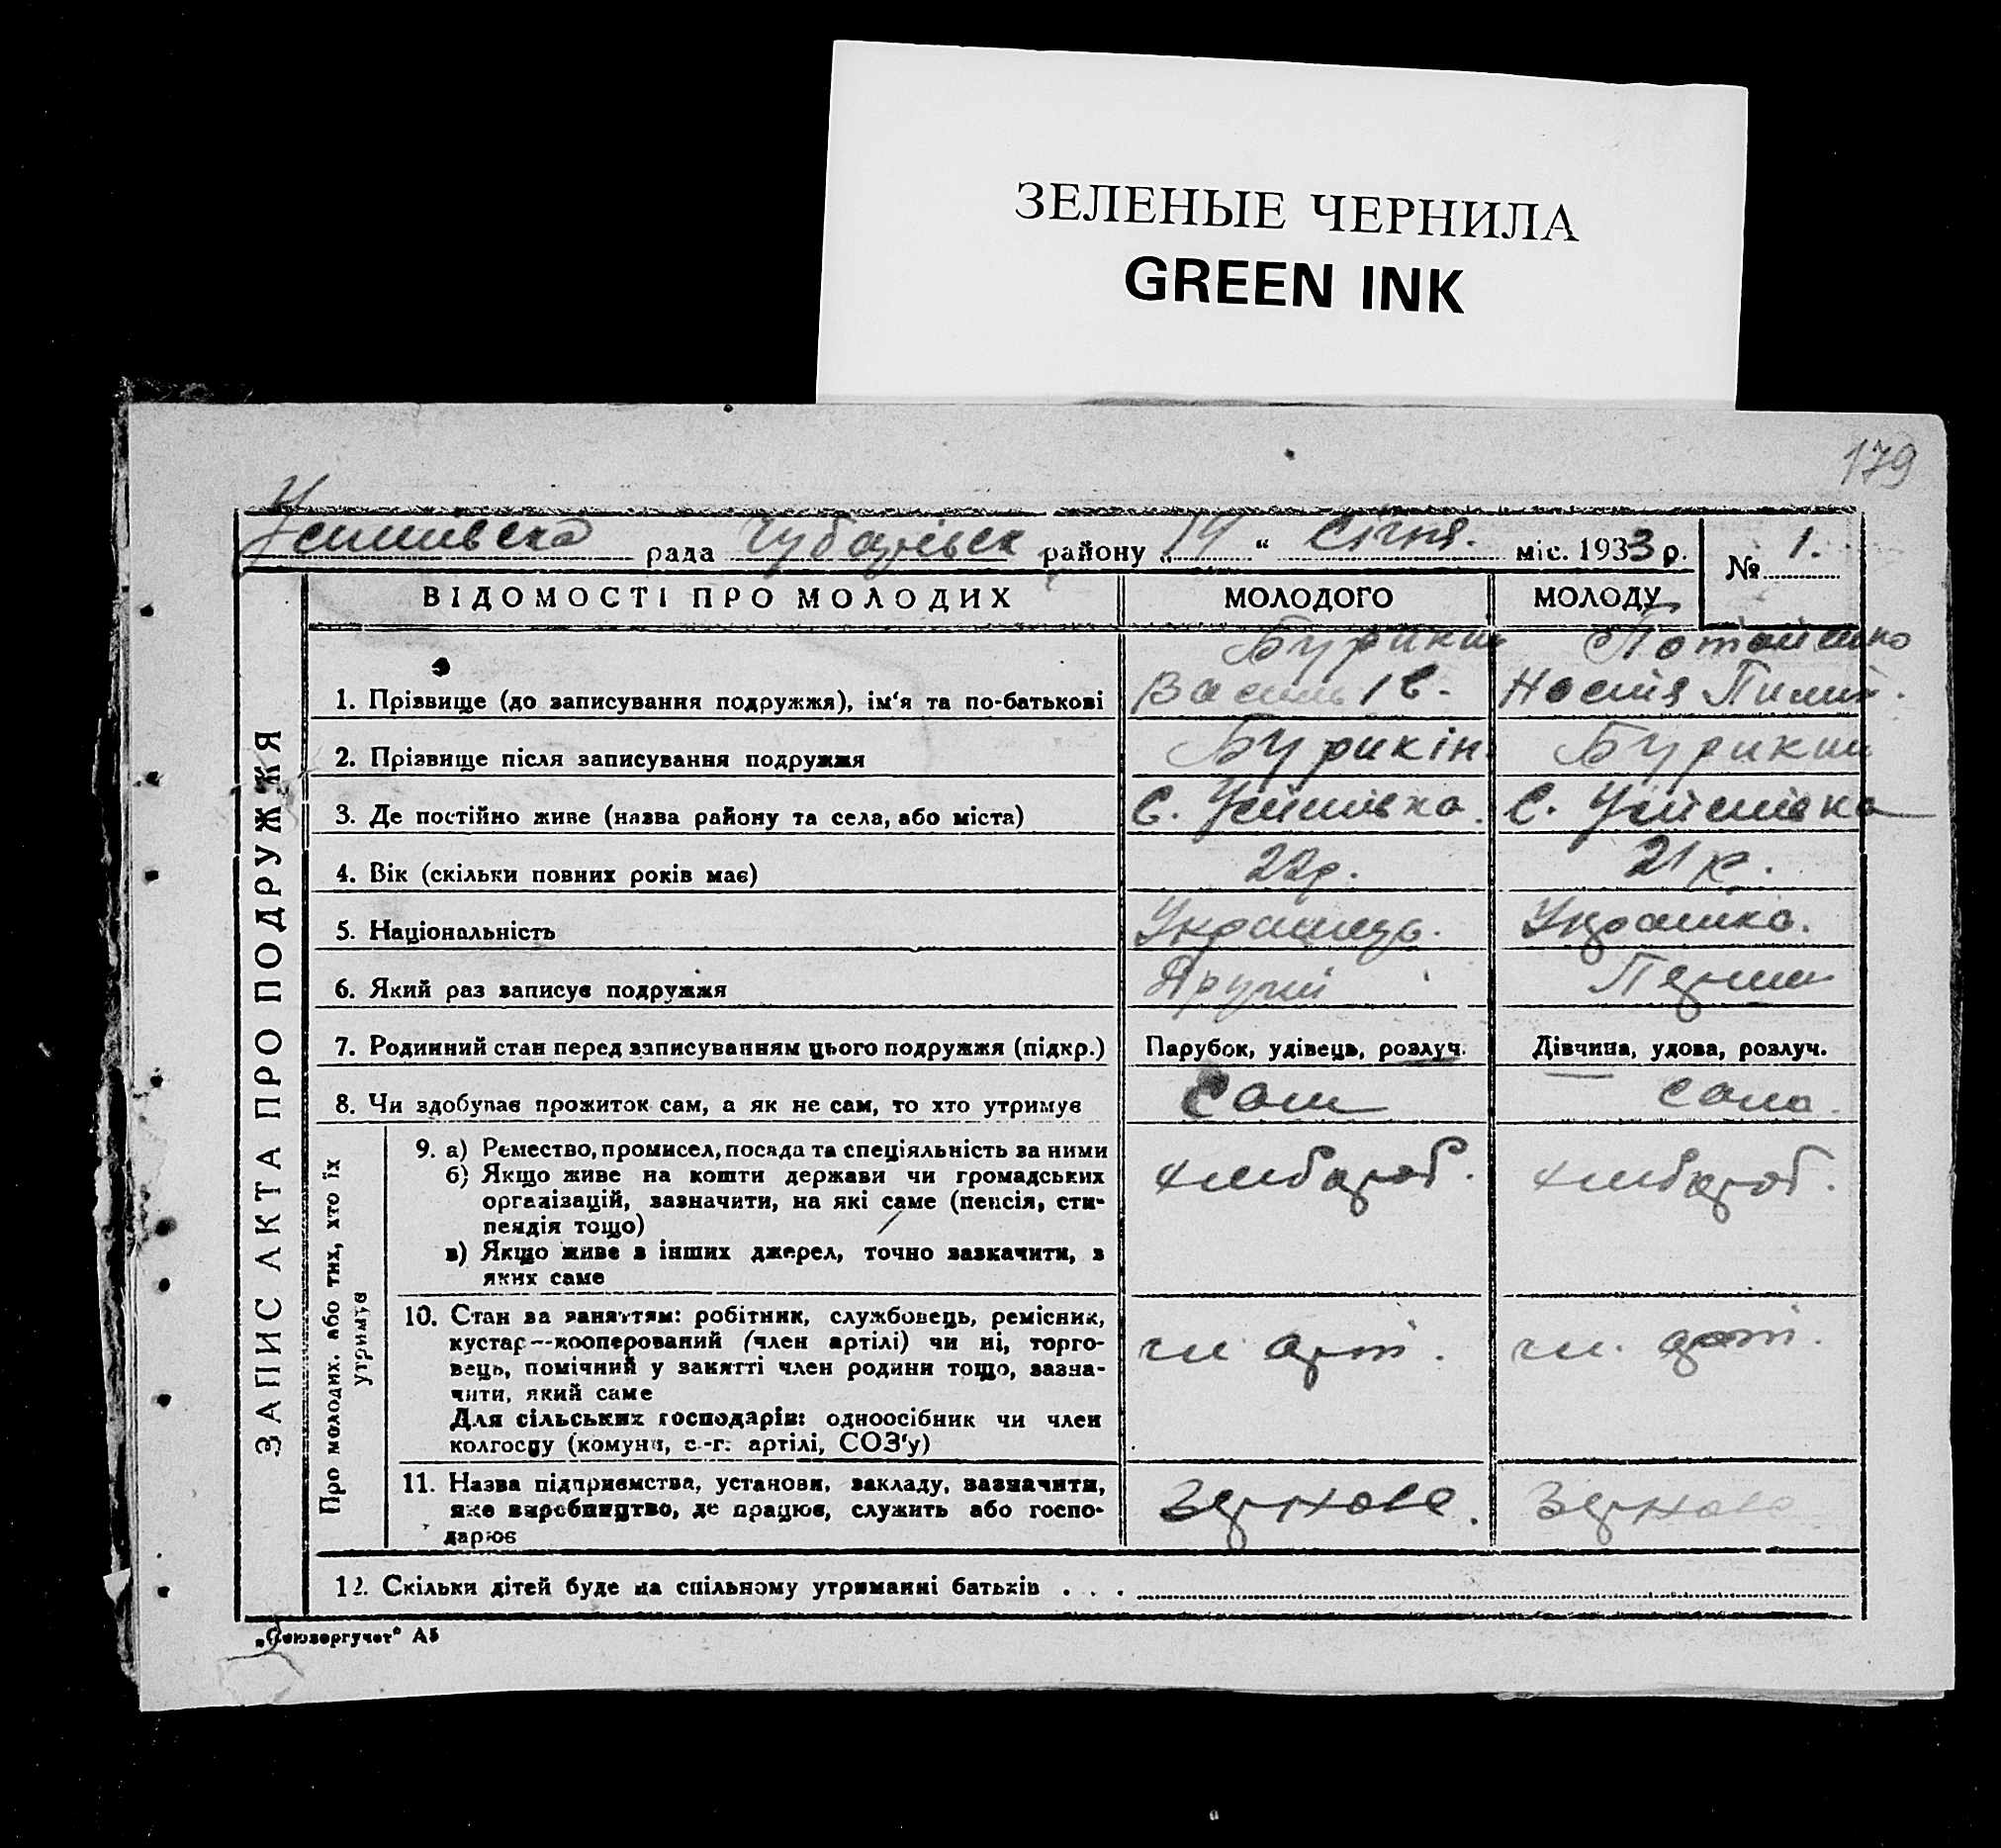 ЗЕЛЕНЫЕ ЧЕРНИЛА
GREEN INK
179
рада Чубарівськ району „ 14 “ Січня. міс. 1933 р. № 1.
ВІДОМОСТІ ПРО МОЛОДИХ МОЛОДОГО МОЛОДУ
Бурикин
1. Прізвище (до записування подружжя), ім‘я та по-батькові Василь Ів. Настя Пилип.
2. Прізвище після записування подружжя Бурикін. Бурикин
3. Де постійно живе (назва району та села, або міста) С. С.
4. Вік (скільки повних років має) 22р. 21 р.
5. Національність Українець. Українка.
6. Який раз записує подружжя Другий Перший
7. Родинний стан перед записуванням цього подружжя (підкр.) Парубок, удівець, розлуч. Дівчина, удова, розлуч.
8. Чи здобуває прожиток сам, а як не сам, то хто утримує Сам сама.
ЗАПИС АКТА ПРО ПОДРУЖЖЯ
Про молодих, або тих, хто їх
утримує
9. а) Ремество, промисел, посада та спеціяльність за ними хлібороб. хлібороб.
б) Якщо живе на кошти держави чи громадських
організацій, зазначити, на які саме (пенсія, сти-
пендія тощо)
в) Якщо живе з інших джерел, точно зазначити, з
яких саме
10. Стан за заняттям: робітник, службовець, ремісник,
кустар—кооперований (член артілі) чи ні, торго- чл. арт. чл. арт.
вець, помічний у занятті член родини тощо, зазна-
чити, який саме
Для сільських господарів: одноосібник чи член
колгоспу (комуни, с.-г. артілі, СОЗ‘у)
11. Назва підприємства, установи, закладу, зазначити,
яке виробництво, де працює, служить або госпо- Зернове. Зернове
дарює
12. Скільки дітей буде на спільному утриманні батьків . . .
„Союзоргучет“ А5